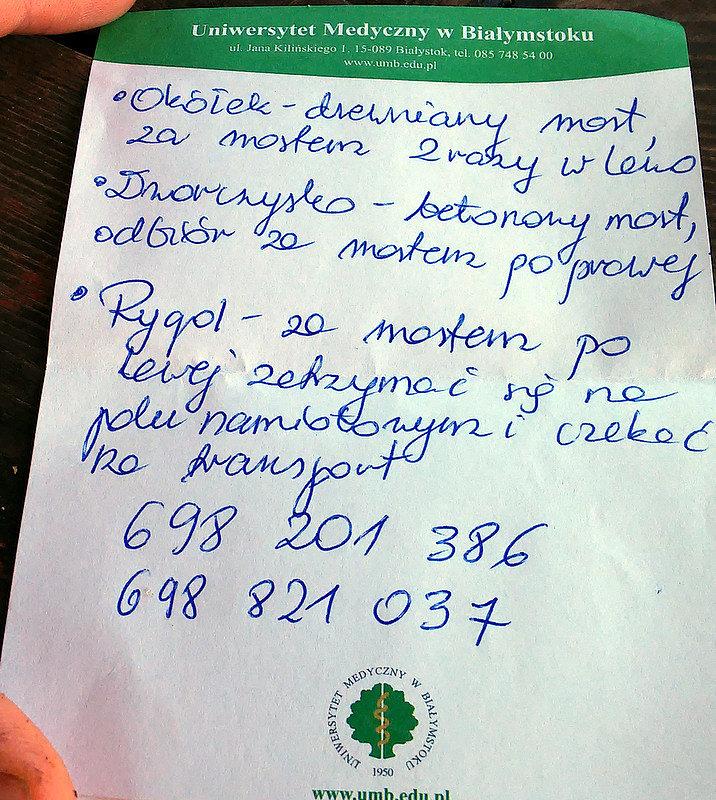 Uniwersytet Medyczny w Białymstoku
ul. Jana Kilińskiego 1, 15-089 Białystok, tel. 085 748 54 00
www.umb.edu.pl
• Okółek - drewniany most,
za mostem 2 razy w lewo
• Dworczysko - betonowy most,
odbiór za mostem po prawej
• Rygol - za mostem po
lewej zatrzymać się na
polu namiotowym i czekać
na transport
698 201 386
698 821 037
UNIWERSYTET MEDYCZNY W BIAŁYMSTOKU
1950
www.umb.edu.pl